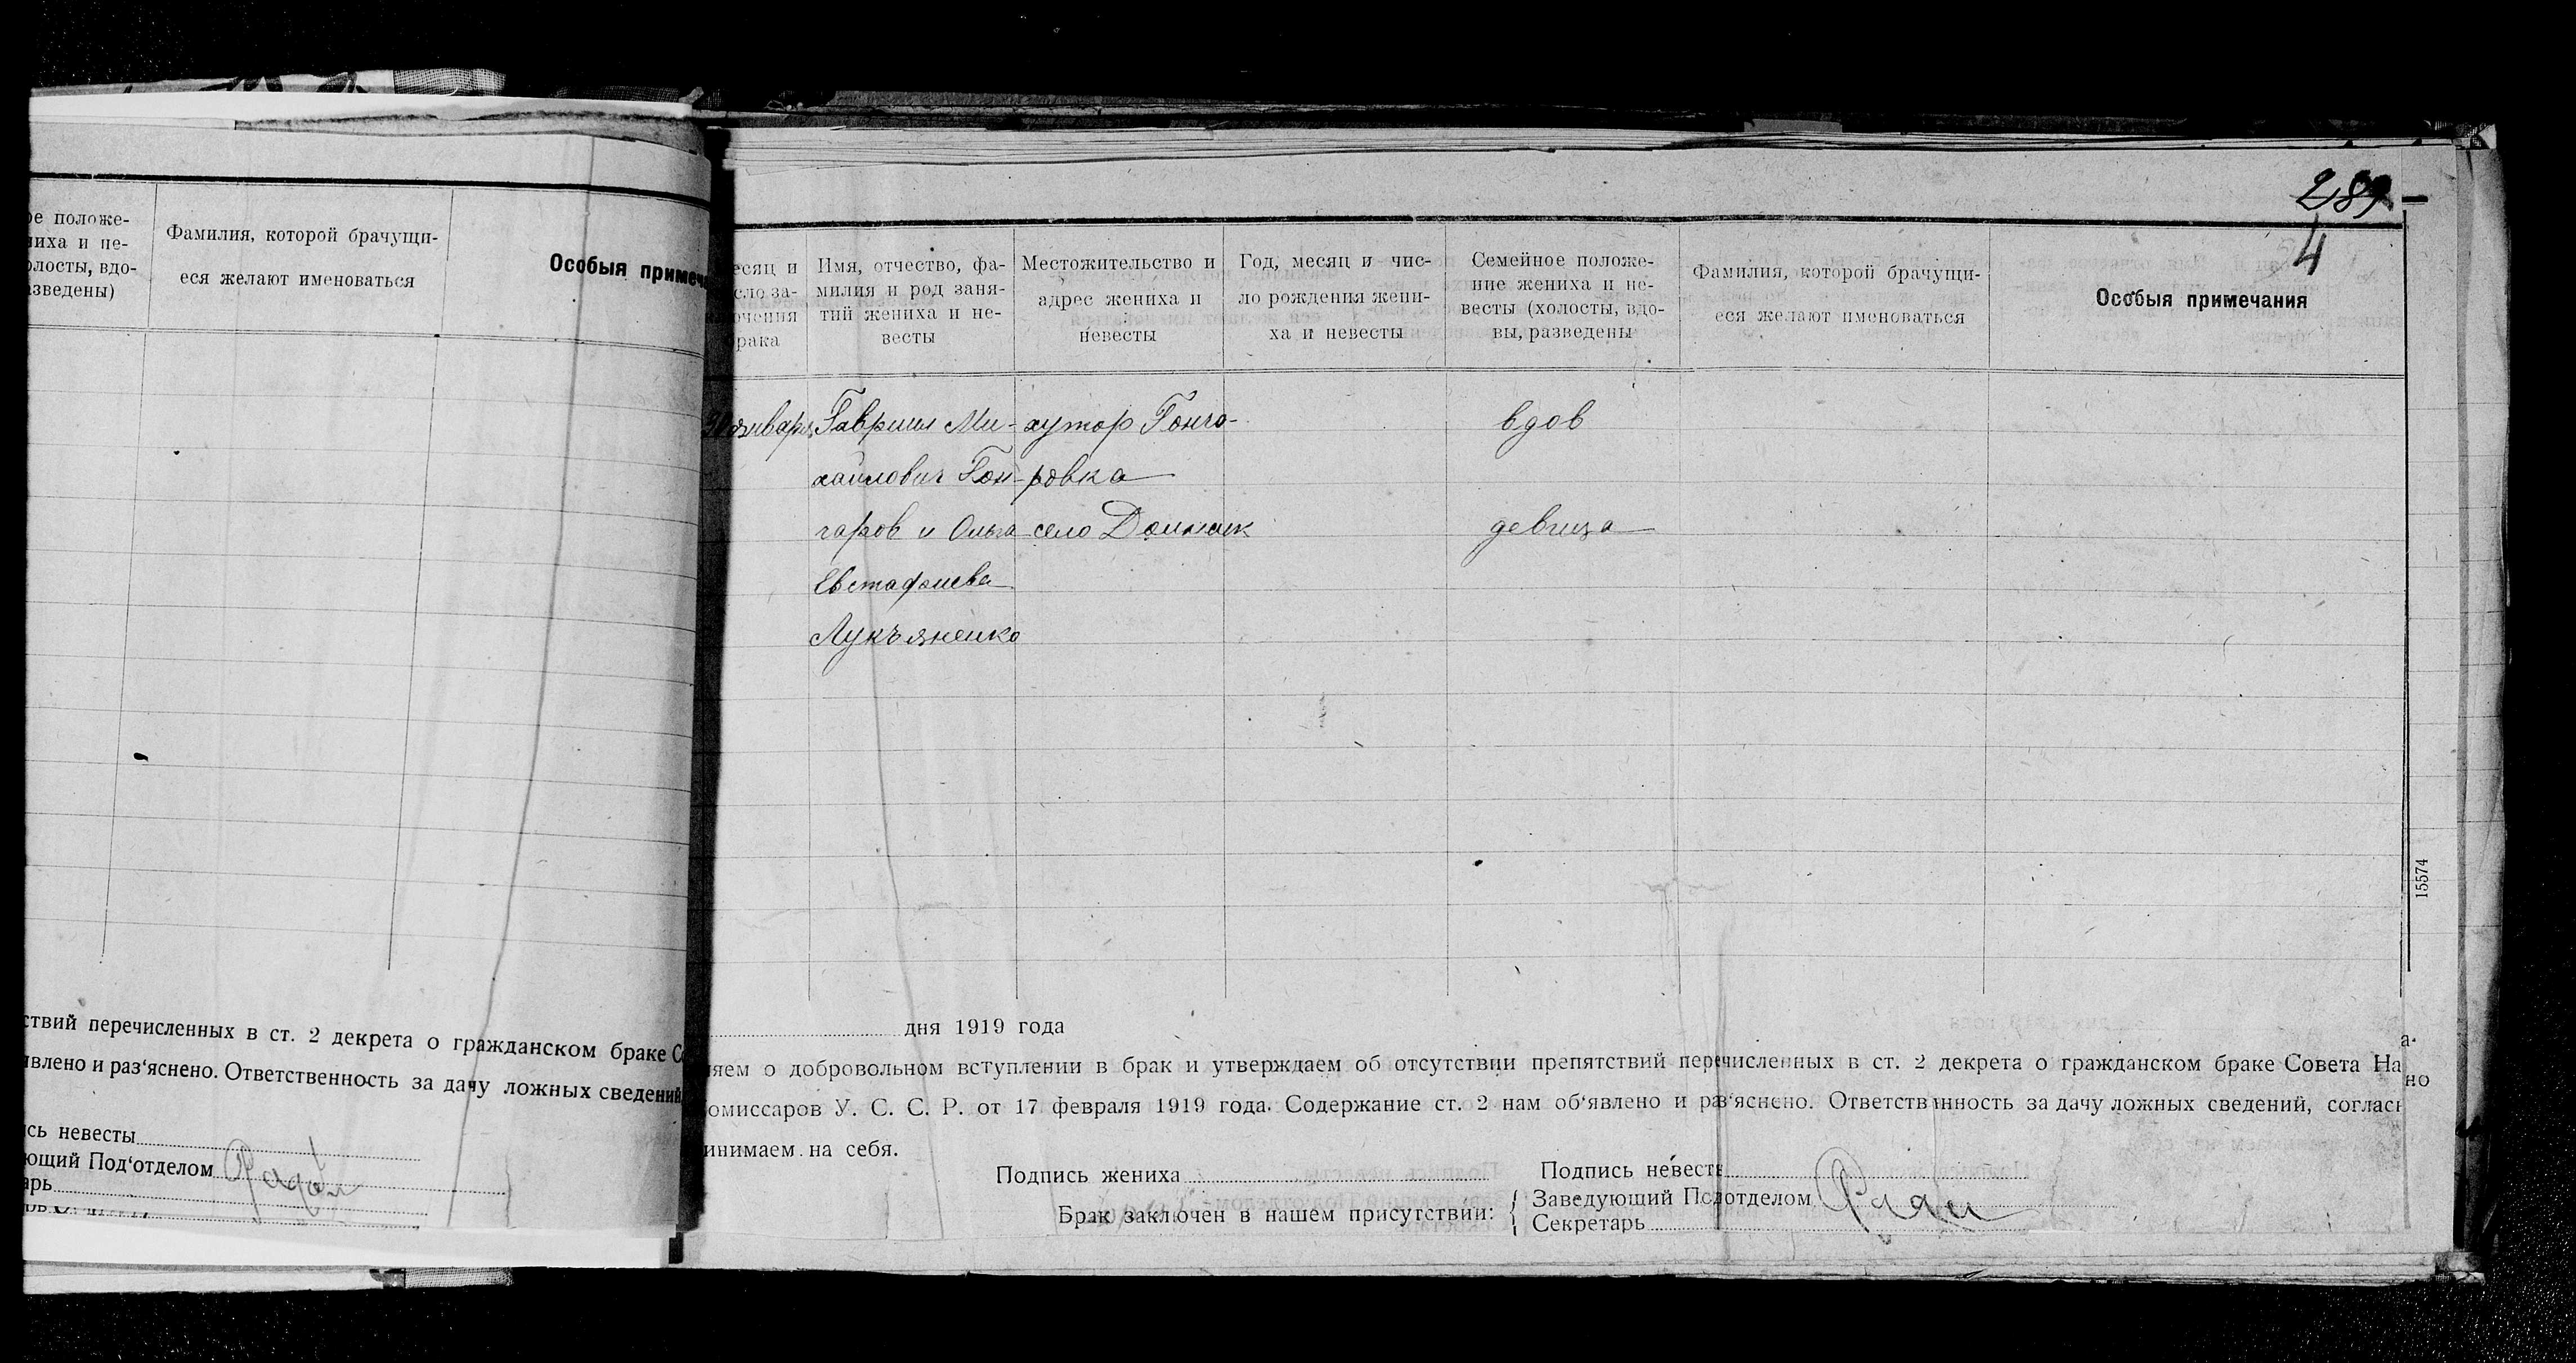 ое положе-
ниха и не-
олосты, вдо-
азведены)
Фамилия, которой брачущи-
еся желают именоваться
Особыя примеча
ствий перечисленных в ст. 2 декрета о гражданском браке Со
явлено и раз'яснено. Ответственность за дачу ложных сведений,
сь невесты
ющий Под'отделом
арь
289
4
есяц и
сло за-
ючения
рака
Имя, отчество, фа-
милия и род заня-
тий жениха и не-
весты
Местожительство и
адрес жениха и
невесты
Год, месяц и чис-
ло рождения жени-
ха и невесты
Семейное положе-
ние жениха и не-
весты (холосты, вдо-
вы, разведены
Фамилия, которой брачущи-
еся желают именоваться
Особыя примечания
января Гавриил Ми- хутор Гонча- вдов
хайлович Гон- ровка
чаров и Ольга село девица
Евстафиева
Лукъяненко
15574
дня 1919 года
яем о добровольном вступлении в брак и утверждаем об отсутствии препятствий перечисленных в ст. 2 декрета о гражданском браке Совета На
омиссаров У. С. С. Р. от 17 февраля 1919 года. Содержание ст. 2 нам об'явлено и раз'яснено. Ответственность за дачу ложных сведений, соглас
инимаем на себя.
Подпись жениха
Подпись невесты
Брак заключен в нашем присутствии:
Заведующий Подотделом
Секретарь